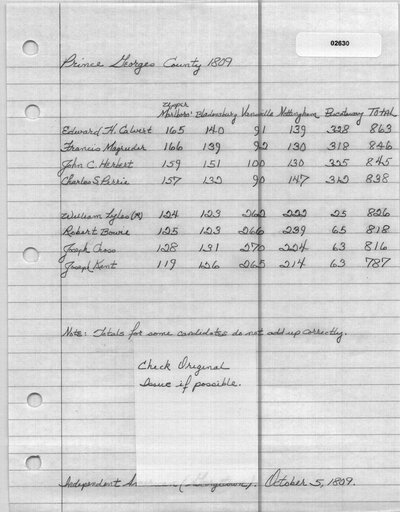 02630
Prince Georges County 1809
Upper
Marlboro' Bladensburg Vansville Nottingham Piscataway TOTAL
Edward H. Calvert 165 140 91 139 328 863
Francis Magruder 166 139 92 130 318 846
John C. Herbert 159 151 100 130 325 845
Charles S. Perrie 157 132 90 147 312 838
William Lyles (R) 124 123 262 222 25 826
Robert Bowie 125 123 266 239 65 818
Joseph Cross 128 131 270 224 63 816
Joseph Kent 119 126 265 214 63 787
Note: Totals for some candidates do not add up correctly.
Check Original
Issue if possible.
Independent October 5, 1809.